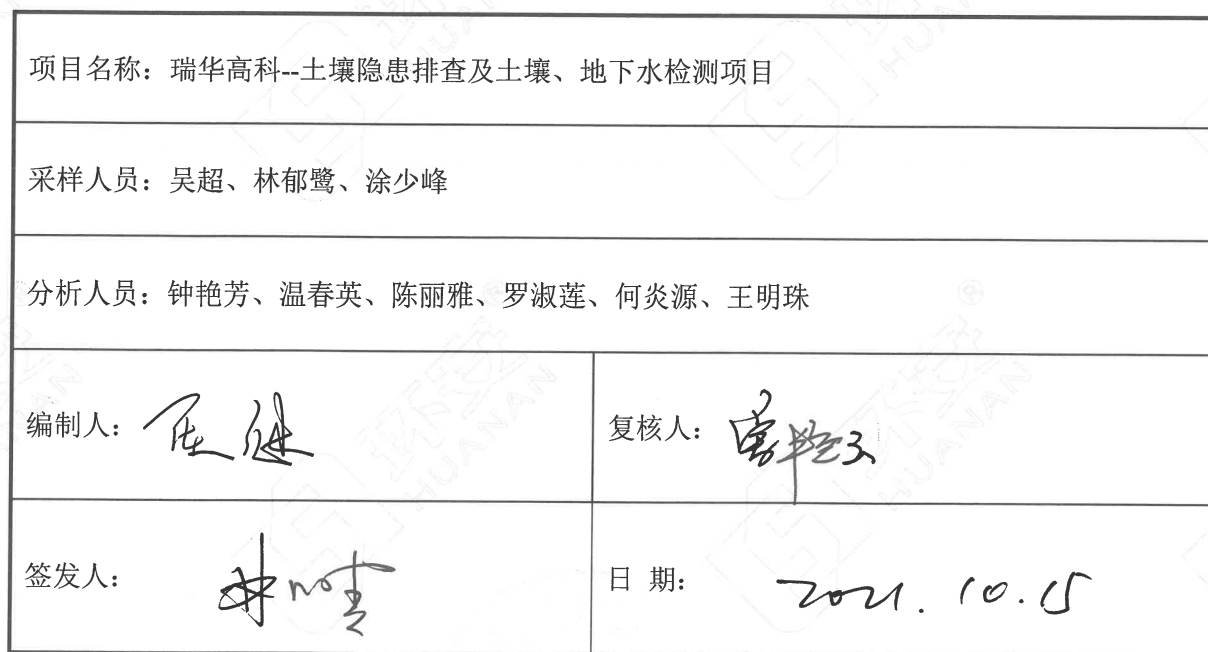 项目名称：瑞华高科--土壤隐患排查及土壤、地下水检测项目
采样人员：吴超、林郁鹭、涂少峰
分析人员：钟艳芳、温春英、陈丽雅、罗淑莲、何炎源、王明珠
编制人：
复核人：
签发人：
日 期：2021.10.15